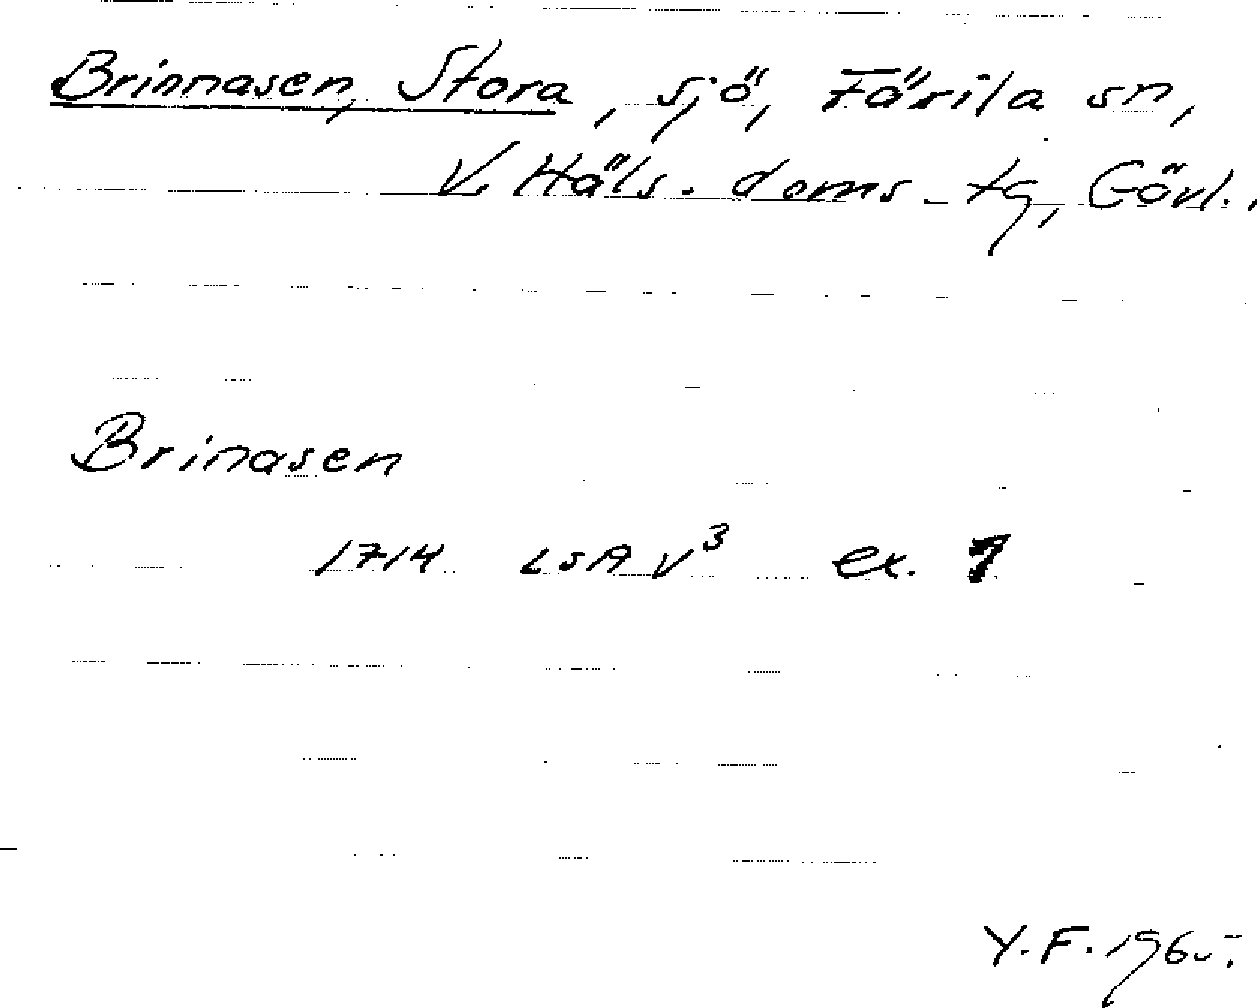 Brinnasen, Stora, sjö, Färila sn,
V. Häls. doms-tg, Gävl.,
Brinasen
1714 LSA V³ ex. 7
Y.F. 1965.